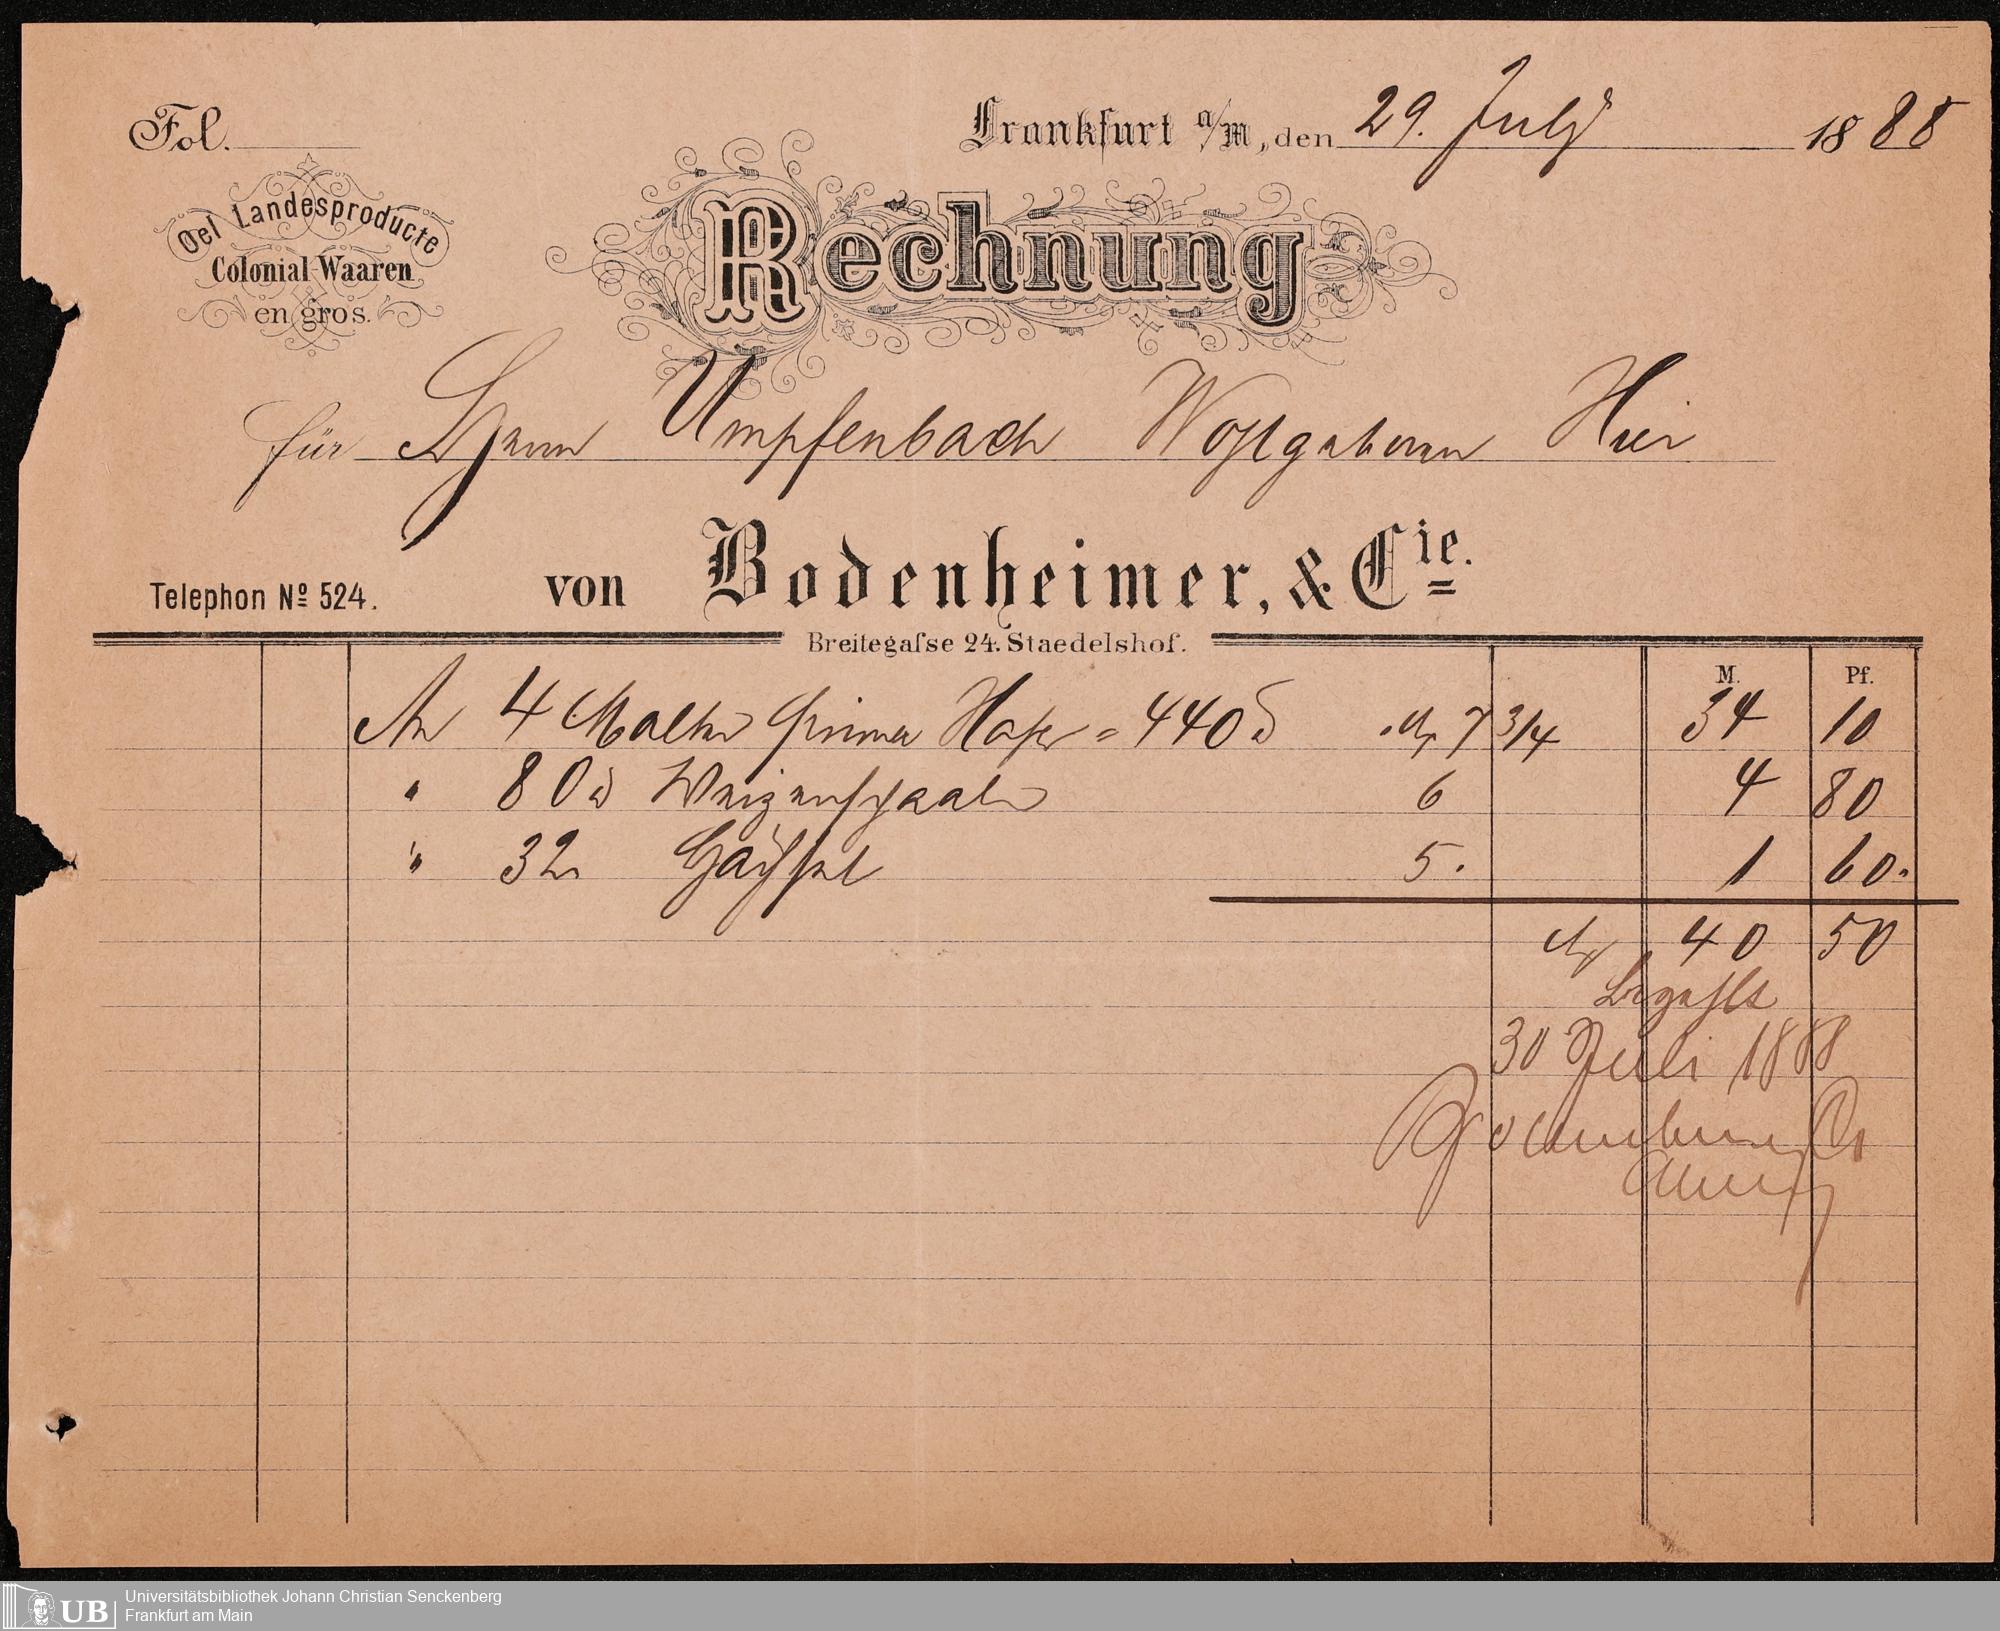 Fol.
Frankfurt a/M, den 29. July 1888
Oel Landesproducte
Colonial-Waaren
en gros.
Rechnung
für Herrn Umpfenbach Wohlgeboren Hier
Telephon No 524.
von Bodenheimer, & Cie.
Breitegaſse 24. Staedelshof.
M. Pf.
An 4 Malter prima Hafer = 440 ℔ M 7 3/4 34 10
" 80 ℔ Weizenschaalen 6 4 80
" 32 Häcksel 5. 1 60.
M 40 50
bezahlt
30 Juli 1888
Universitätsbibliothek Johann Christian Senckenberg
Frankfurt am Main
UB